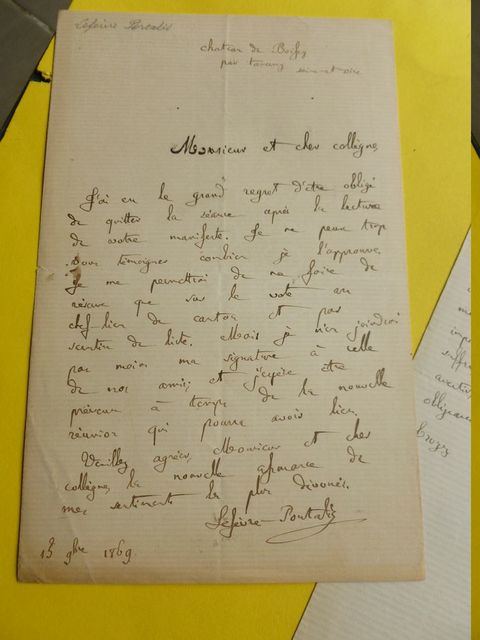 Lefèvre Portalis
chateau de Boissy
par taverny seine et oise
Monsieur et cher collègue
J'ai eu le grand regret d'être obligé
de quitter la séance après la lecture
de votre manifeste. Je ne peux trop
vous témoigner combien je l'approuve.
Je me permettrai de ne faire de
réserve que sur le vote au
chef-lieu de canton et par
scrutin de liste. Mais je n'en joindrai
pas moins ma signature à celle
de nos amis; et j'espère être
prévenu à temps de la nouvelle
réunion qui pourra avoir lieu.
Veuillez agréer, Monsieur et cher
collègue, la nouvelle assurance de
mes sentiments les plus dévoués.
Lefèvre-Pontalis
13 9bre 1869